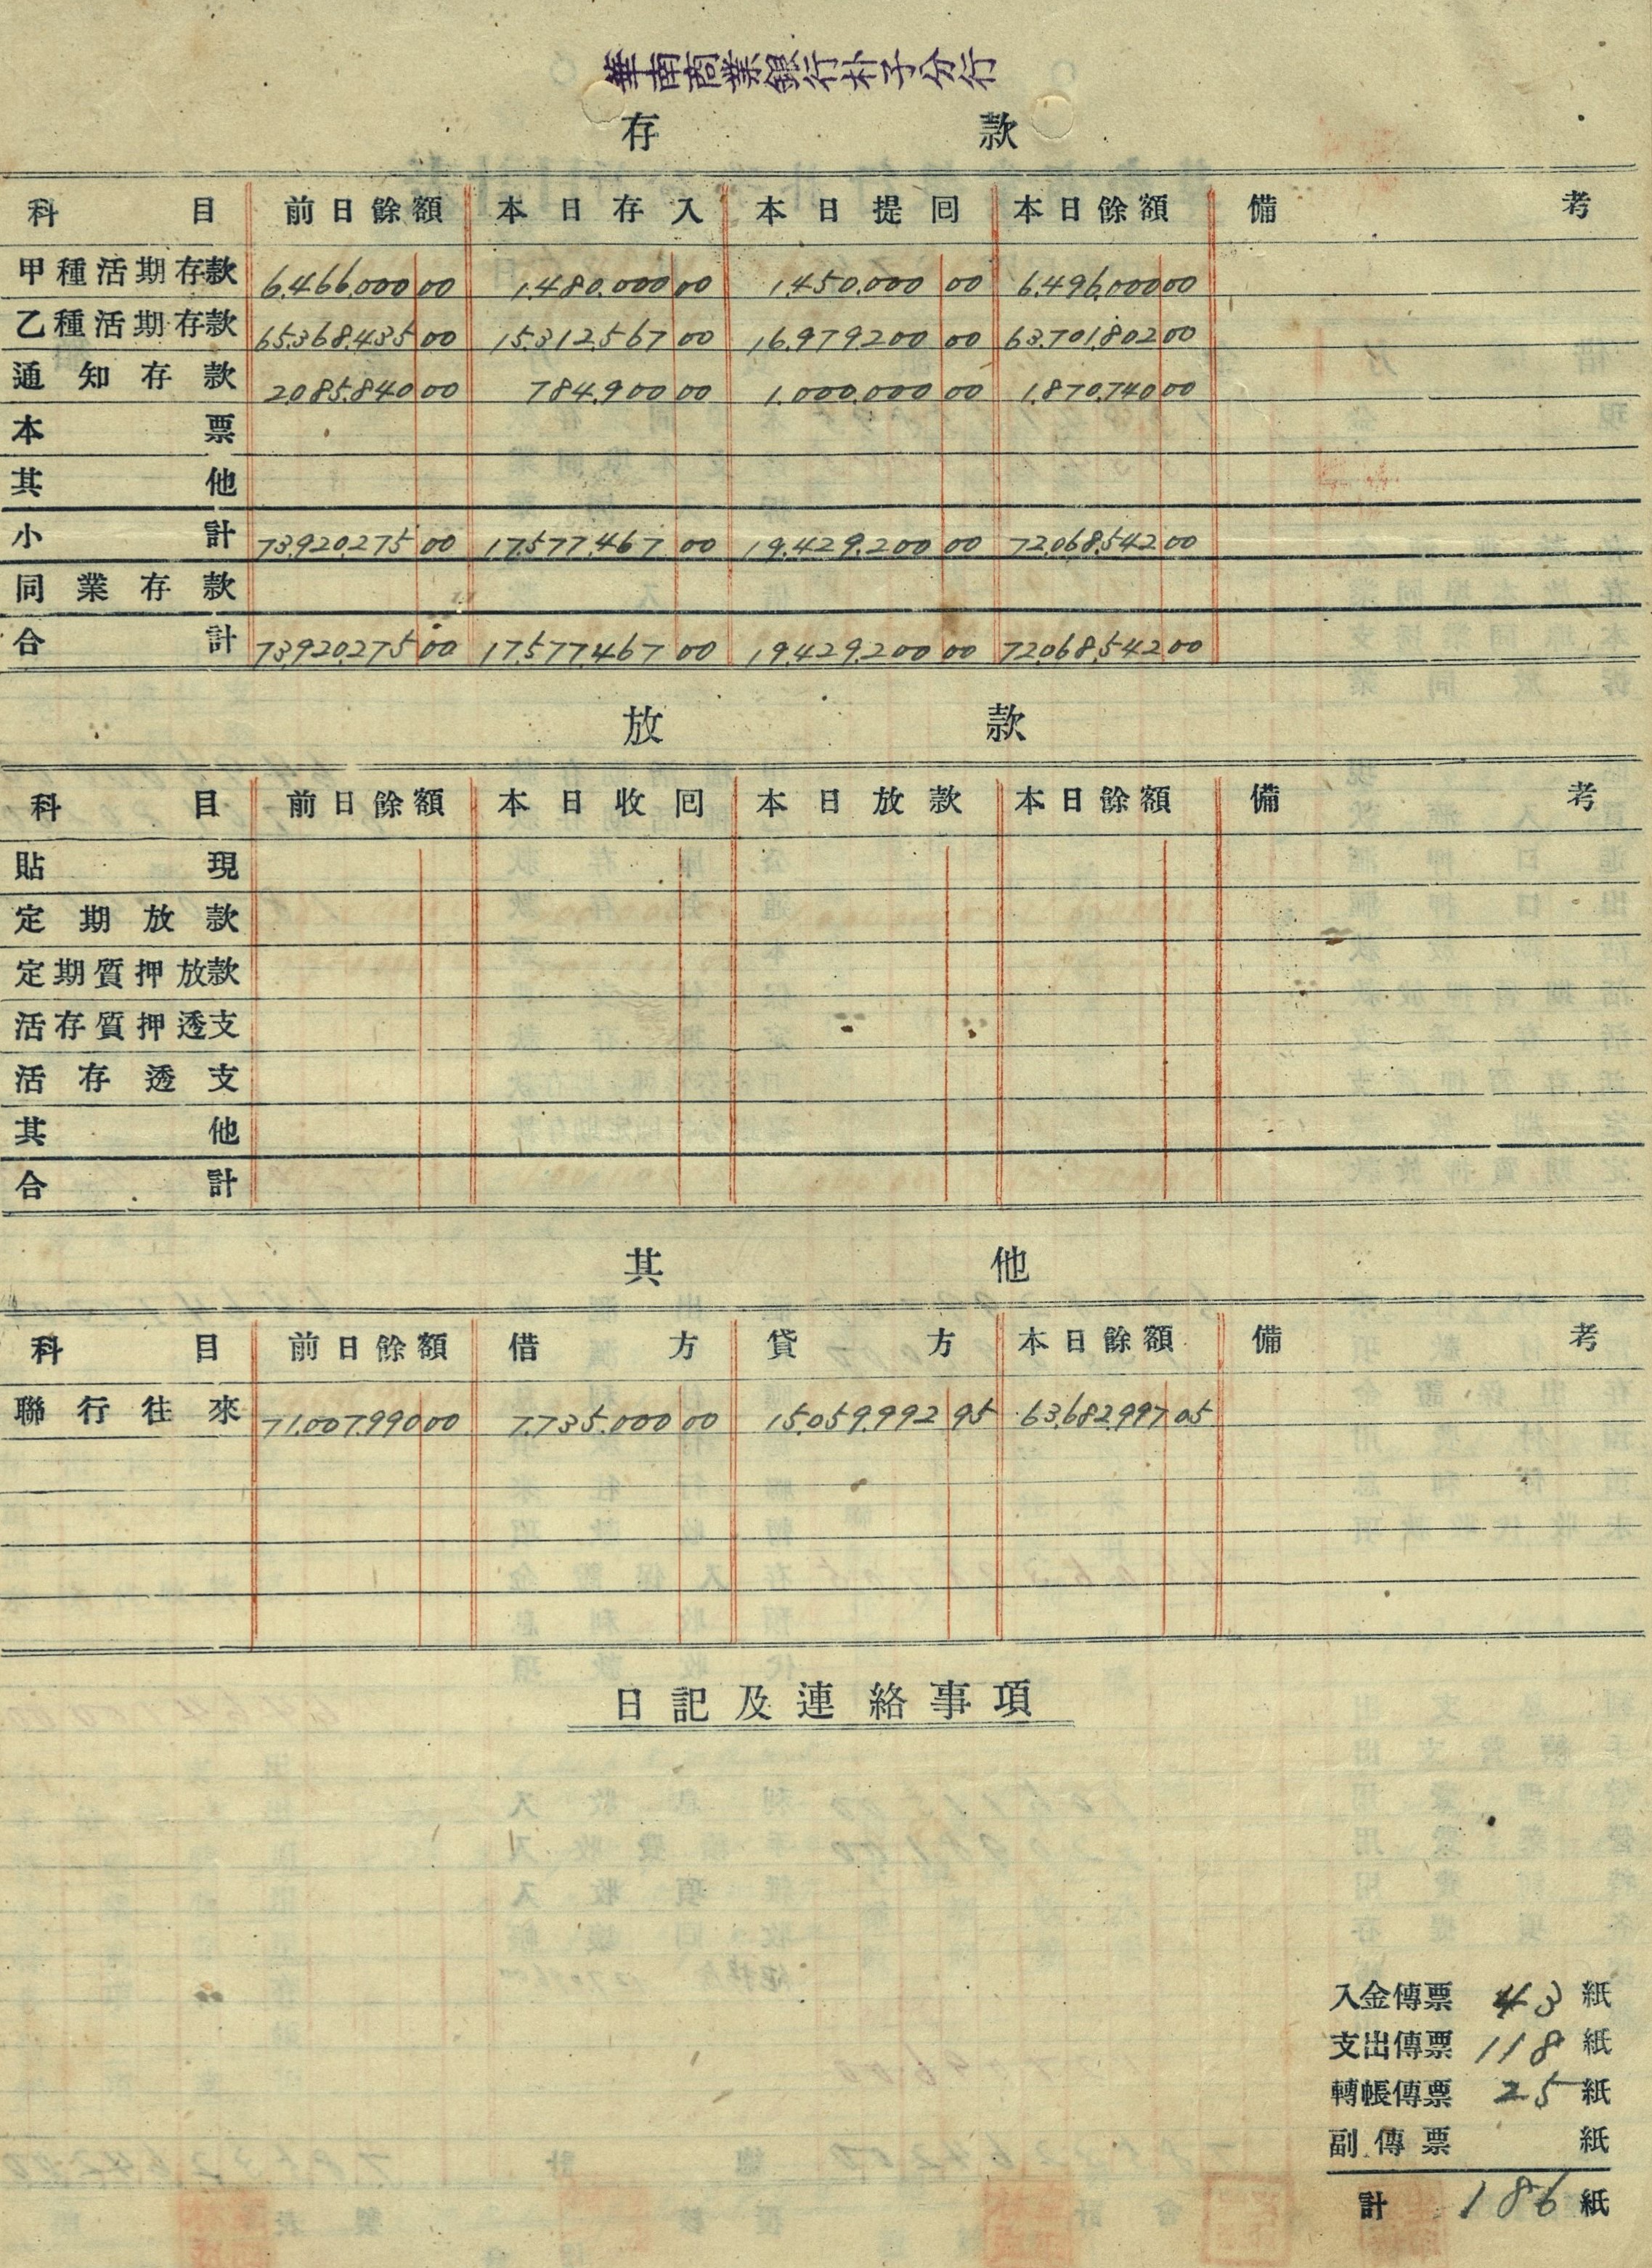 華南商業銀行朴子分行
存款
科目 前日餘額 本日存入 本日提回 本日餘額 備考
甲種活期存款 6,466,000 00 1,480,000 00 1,450,000 00 6,496,000 00
乙種活期存款 65,368,435 00 15,312,567 00 16,979,200 00 63,701,802 00
通知存款 2,085,840 00 784,900 00 1,000,000 00 1,870,740 00
本票
其他
小計 73,920,275 00 17,577,467 00 19,429,200 00 72,068,542 00
同業存款
合計 73,920,275 00 17,577,467 00 19,429,200 00 72,068,542 00
放款
科目 前日餘額 本日收回 本日放款 本日餘額 備考
貼現
定期放款
定期質押放款
活存質押透支
活存透支
其他
合計
其他
科目 前日餘額 借方 貸方 本日餘額 備考
聯行往來 71,007,990 00 7,735,000 00 15,059,992 95 63,682,997 05
日記及連絡事項
入金傳票 43 紙
支出傳票 118 紙
轉帳傳票 25 紙
副傳票 紙
計 186 紙